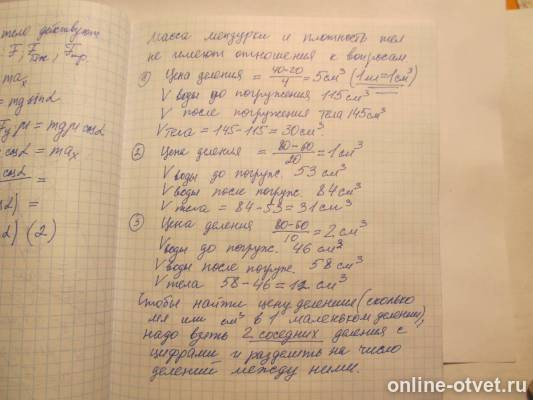 теле действуют
F; Fтяж; Fтр.
max
= mg sin α
Fμ = mgμ cos α
cos α = max
cos α =
α) =
α) (2)
Масса мензурки и плотность тел
не имеют отношения к вопросам.
① Цена деления = 40-20/4 = 5см³ (1мл=1см³)
V воды до погружения 115см³
V после погружения тела 145см³
Vтела = 145-115 = 30см³
② Цена деления = 80-60/20 = 1см³
V воды до погруж. 53 см³
V воды после погруж. 84см³
V тела = 84-53 = 31см³
③ Цена деления 80-60/10 = 2см³
V воды до погруж. 46 см³
V воды после погруж. 58см³
V тела 58-46 = 12 см³
Чтобы найти цену деления (сколько
мл или см³ в 1 маленьком делении),
надо взять 2 соседних деления с
цифрами и разделить на число
делений между ними.
online-otvet.ru